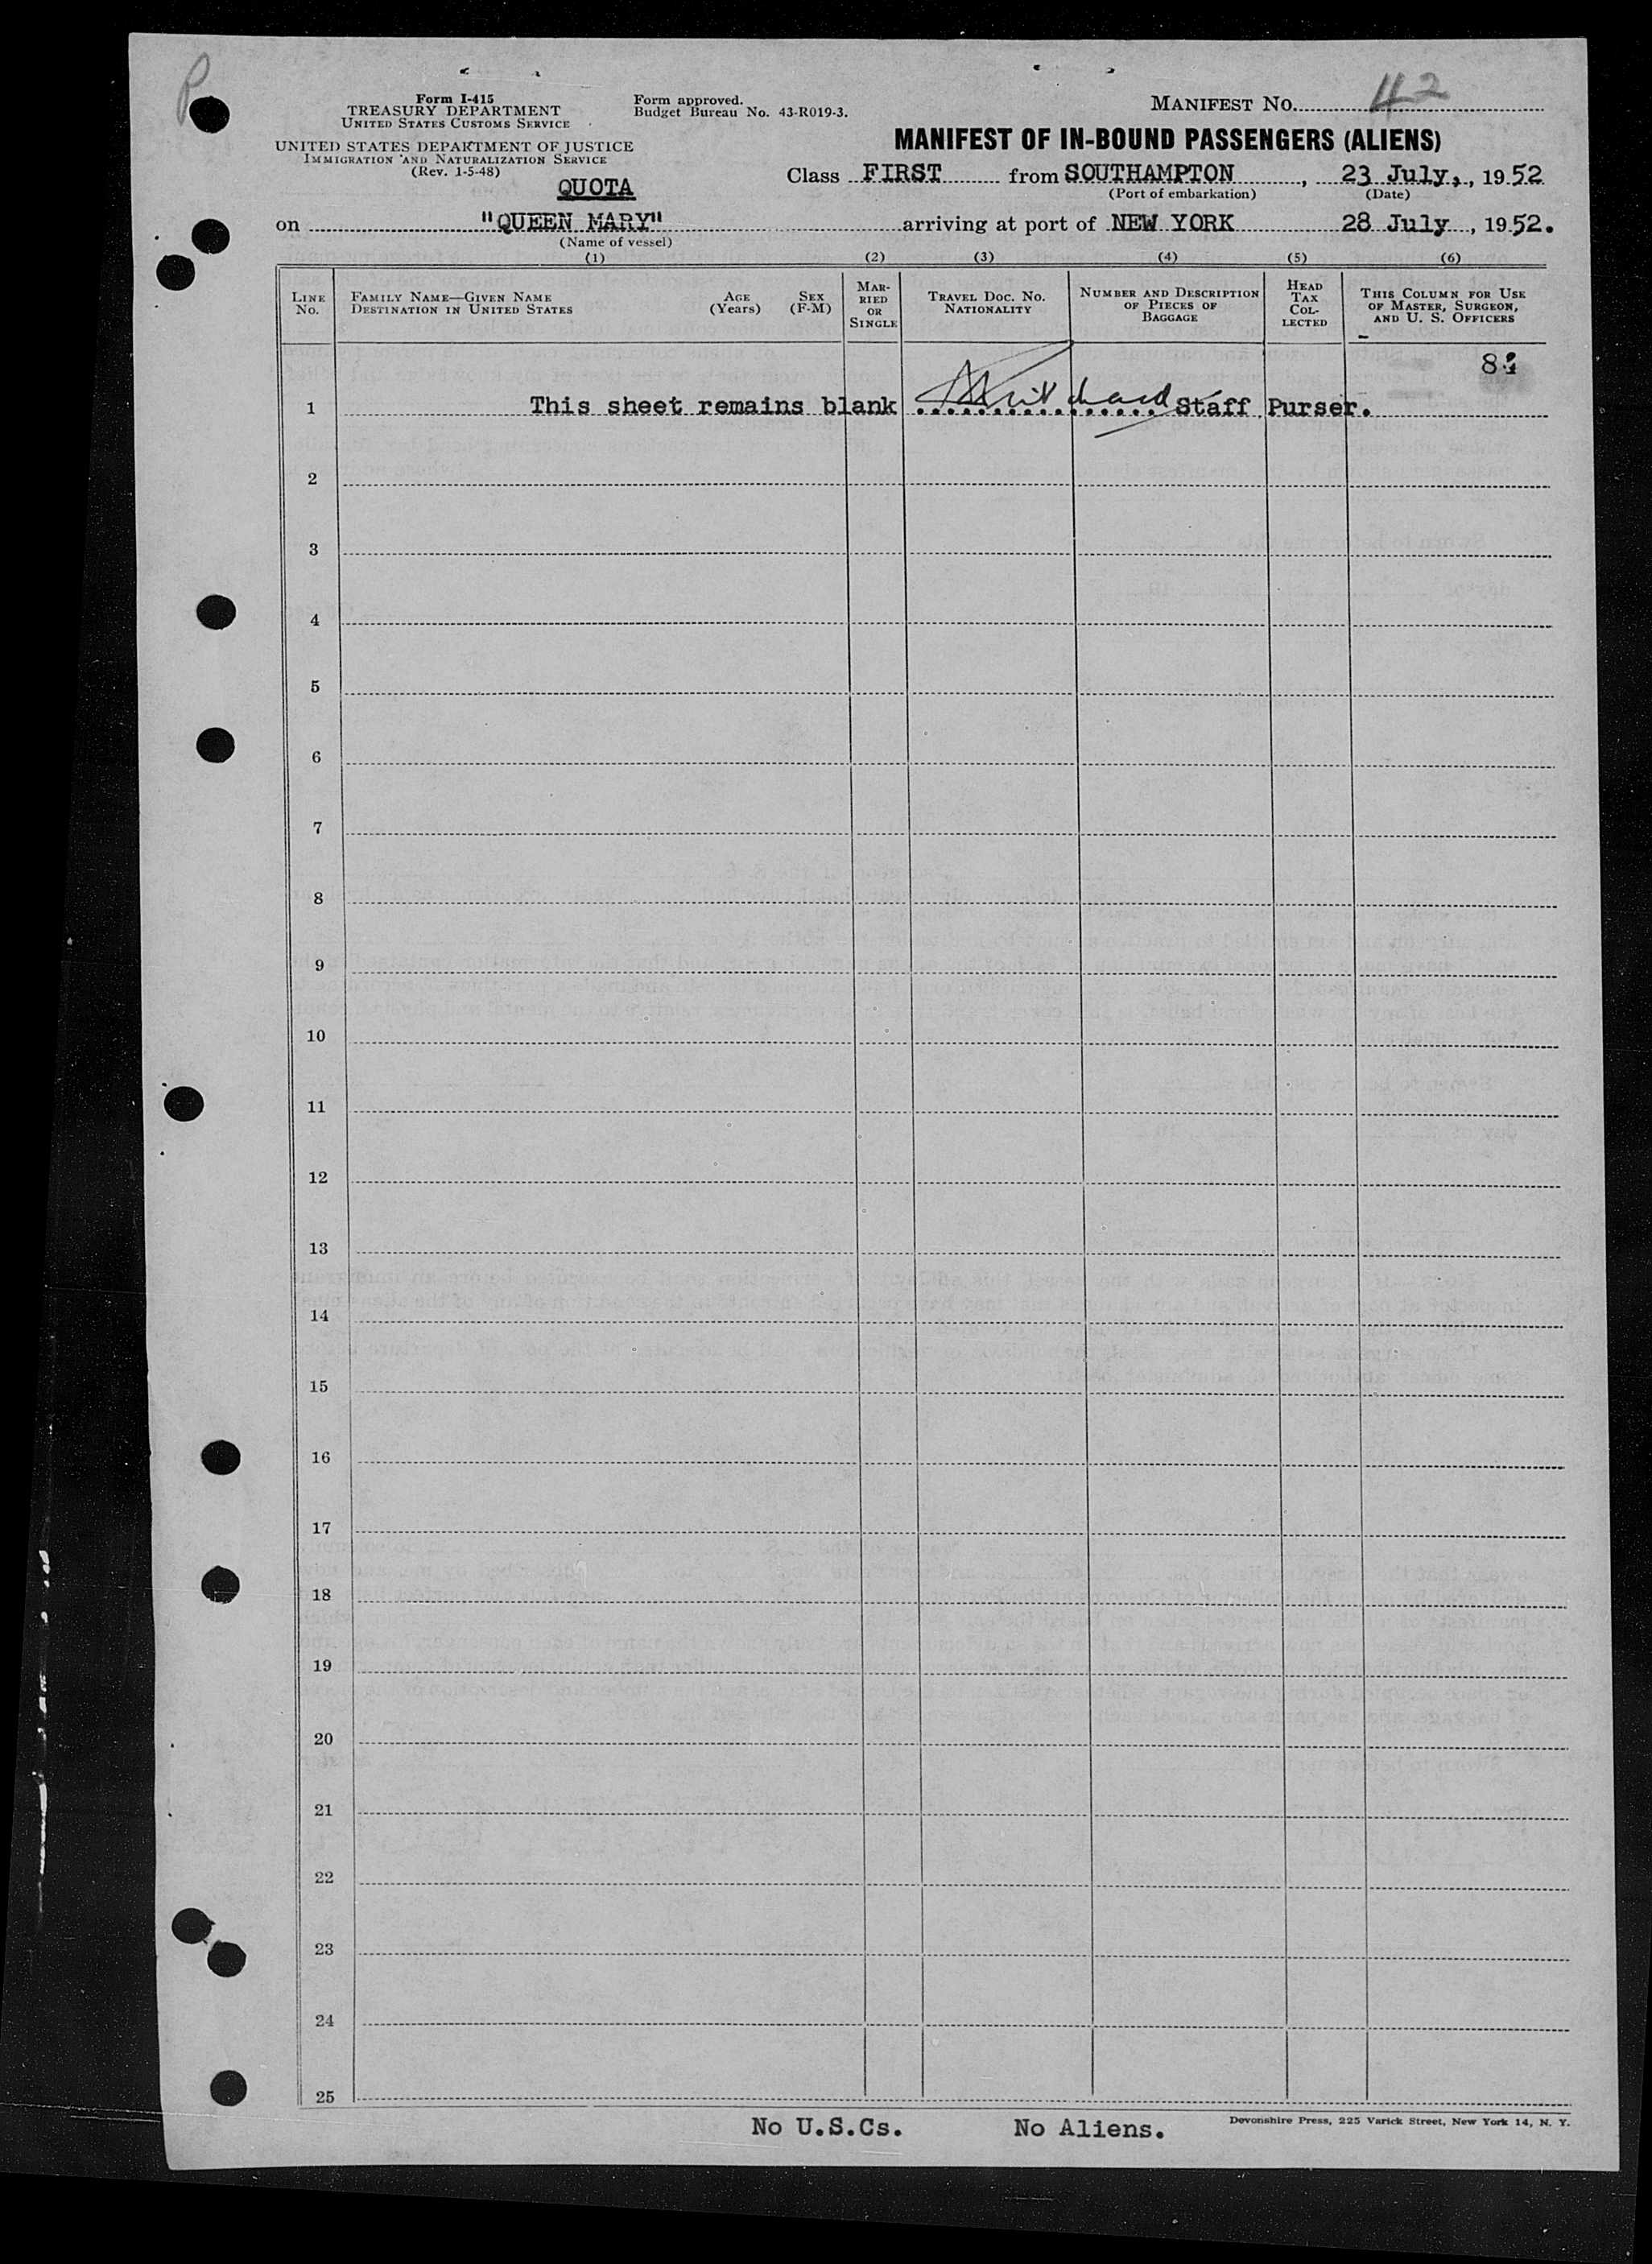 P
Form I-415
TREASURY DEPARTMENT
UNITED STATES CUSTOMS SERVICE
UNITED STATES DEPARTMENT OF JUSTICE
IMMIGRATION AND NATURALIZATION SERVICE
(Rev. 1-5-48)
Form approved.
Budget Bureau No. 43-R019-3.
MANIFEST NO. 42
MANIFEST OF IN-BOUND PASSENGERS (ALIENS)
QUOTA
Class FIRST from SOUTHAMPTON, 23 July, , 1952
(Port of embarkation) (Date)
on "QUEEN MARY" arriving at port of NEW YORK 28 July , 1952.
(Name of vessel)
(1) (2) (3) (4) (5) (6)
LINE NO.
FAMILY NAME—GIVEN NAME
DESTINATION IN UNITED STATES
AGE (Years)
SEX (F-M)
MARRIED OR SINGLE
TRAVEL DOC. NO.
NATIONALITY
NUMBER AND DESCRIPTION OF PIECES OF BAGGAGE
HEAD TAX COLLECTED
THIS COLUMN FOR USE OF MASTER, SURGEON, AND U. S. OFFICERS
1 This sheet remains blank Staff Purser.
2
3
4
5
6
7
8
9
10
11
12
13
14
15
16
17
18
19
20
21
22
23
24
25
No U.S.Cs. No Aliens.
Devonshire Press, 225 Varick Street, New York 14, N. Y.